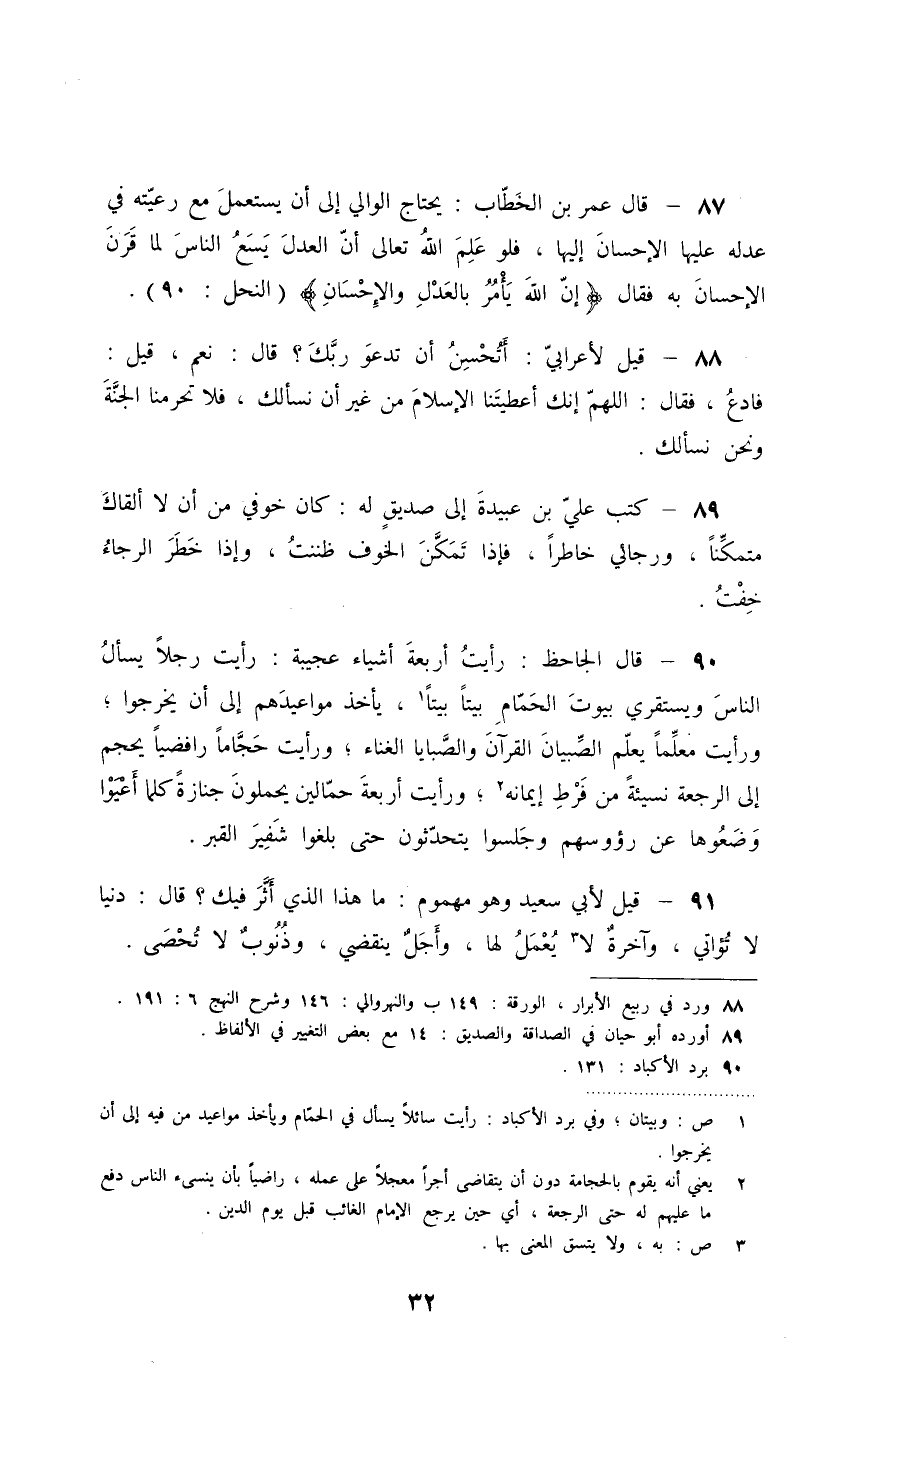 ٨٧ – قال عمر بن الخَطّاب : يحتاج الوالي إلى أن يستعملَ مع رعيّته في
عدله عليها الإحسانَ إليها ، فلو عَلِمَ اللهُ تعالى أنّ العدلَ يَسَعُ الناسَ لما قَرَنَ
الإحسانَ به فقال ﴿ إنّ اللهَ يَأْمُرُ بالعَدْلِ والإِحْسَانِ ﴾ ( النحل : ٩٠ ) .
٨٨ – قيل لأعرابيّ : أَتُحْسِنُ أن تدعوَ ربَّكَ ؟ قال : نعم ، قيل :
فادعُ ، فقال : اللهمّ إنك أعطيتَنا الإسلامَ من غير أن نسألك ، فلا تحرمنا الجنَّةَ
ونحن نسألك .
٨٩ – كتب عليّ بن عبيدةَ إلى صديقٍ له : كان خوفي من أن لا ألقاكَ
متمكِّناً ، ورجائي خاطراً ، فإذا تَمَكَّنَ الخوف ظننتُ ، وإذا خَطَرَ الرجاءُ
خِفْتُ .
٩٠ – قال الجاحظ : رأيتُ أربعةَ أشياء عجيبة : رأيت رجلاً يسألُ
الناسَ ويستقري بيوتَ الحَمّامِ بيتاً بيتاً١ ، يأخذ مواعيدَهم إلى أن يخرجوا ؛
ورأيت معلِّماً يعلّم الصِّبيانَ القرآنَ والصَّبايا الغناء ؛ ورأيت حَجَّاماً رافضياً يحجم
إلى الرجعة نسيئةً من فَرْطِ إيمانه٢ ؛ ورأيت أربعةَ حمّالين يحملونَ جنازةً كلما أَعْيَوْا
وَضَعُوها عن رؤوسهم وجَلسوا يتحدّثون حتى بلغوا شَفِيرَ القبر .
٩١ – قيل لأبي سعيد وهو مهموم : ما هذا الذي أَثَّرَ فيك ؟ قال : دنيا
لا تُؤاتي ، وآخرةٌ لا٣ يُعْمَلُ لها ، وأَجَلٌ ينقضي ، وذُنُوبٌ لا تُحْصَى .
٨٨ ورد في ربيع الأبرار ، الورقة : ١٤٩ ب والنهروالي : ١٤٦ وشرح النهج ٦ : ١٩١ .
٨٩ أورده أبو حيان في الصداقة والصديق : ١٤ مع بعض التغيير في الألفاظ .
٩٠ برد الأكباد : ١٣١ .
١ ص : وبيتان ؛ وفي برد الأكباد : رأيت سائلاً يسأل في الحمّام ويأخذ مواعيد من فيه إلى أن
يخرجوا .
٢ يعني أنه يقوم بالحجامة دون أن يتقاضى أجراً معجلاً على عمله ، راضياً بأن ينسىء الناس دفع
ما عليهم له حتى الرجعة ، أي حين يرجع الإمام الغائب قبل يوم الدين .
٣ ص : به ، ولا يتسق المعنى بها .
٣٢